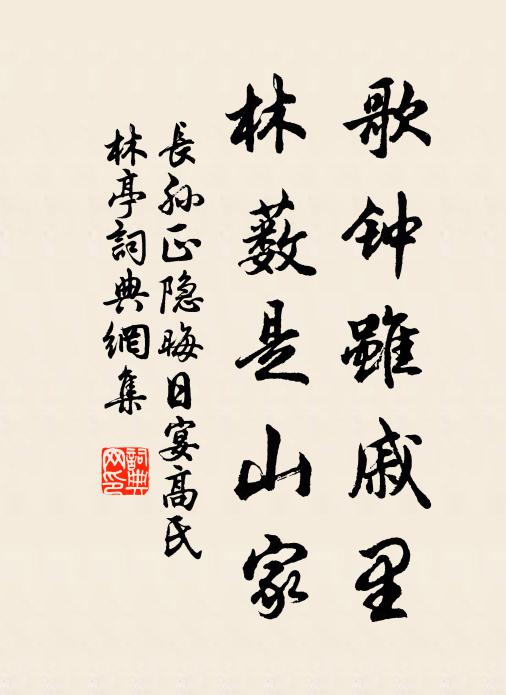 歌钟雖戚里
林薮是山家
長孙正隐晦日宴高氏
林亭詞典網集
詞典
网印